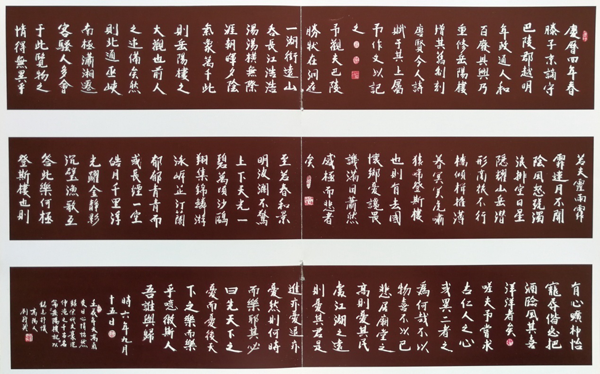 慶曆四年春
滕子京謫守
巴陵郡越明
年政通人和
百廢具興乃
重修岳陽樓
增其舊制刻
唐賢今人詩
賦于其上屬
予作文以記
之
予觀夫巴陵
勝狀在洞庭
一湖銜遠山
吞長江浩浩
湯湯橫無際
涯朝暉夕陰
氣象萬千此
則岳陽樓之
大觀也前人
之述備矣然
則北通巫峽
南極瀟湘遷
客騷人多會
于此覽物之
情得無異乎
若夫霪雨霏
霏連月不開
陰風怒號濁
浪排空日星
隱耀山岳潛
形商旅不行
檣傾楫摧薄
暮冥冥虎嘯
猿啼登斯樓
也則有去國
懷鄉憂讒畏
譏滿目蕭然
感極而悲者
矣
至若春和景
明波瀾不驚
上下天光一
碧萬頃沙鷗
翔集錦鱗游
泳岸芷汀蘭
郁郁青青而
或長煙一空
皓月千里浮
光躍金靜影
沉璧漁歌互
答此樂何極
登斯樓也則
有心曠神怡
寵辱偕忘把
酒臨風其喜
洋洋者矣
嗟夫予嘗求
古仁人之心
或異二者之
為何哉不以
物喜不以己
悲居廟堂之
高則憂其民
處江湖之遠
則憂其君是
進亦憂退亦
憂然則何時
而樂耶其必
曰先天下之
憂而憂後天
下之樂而樂
乎噫微斯人
吾誰與歸
時六年九月
十五日